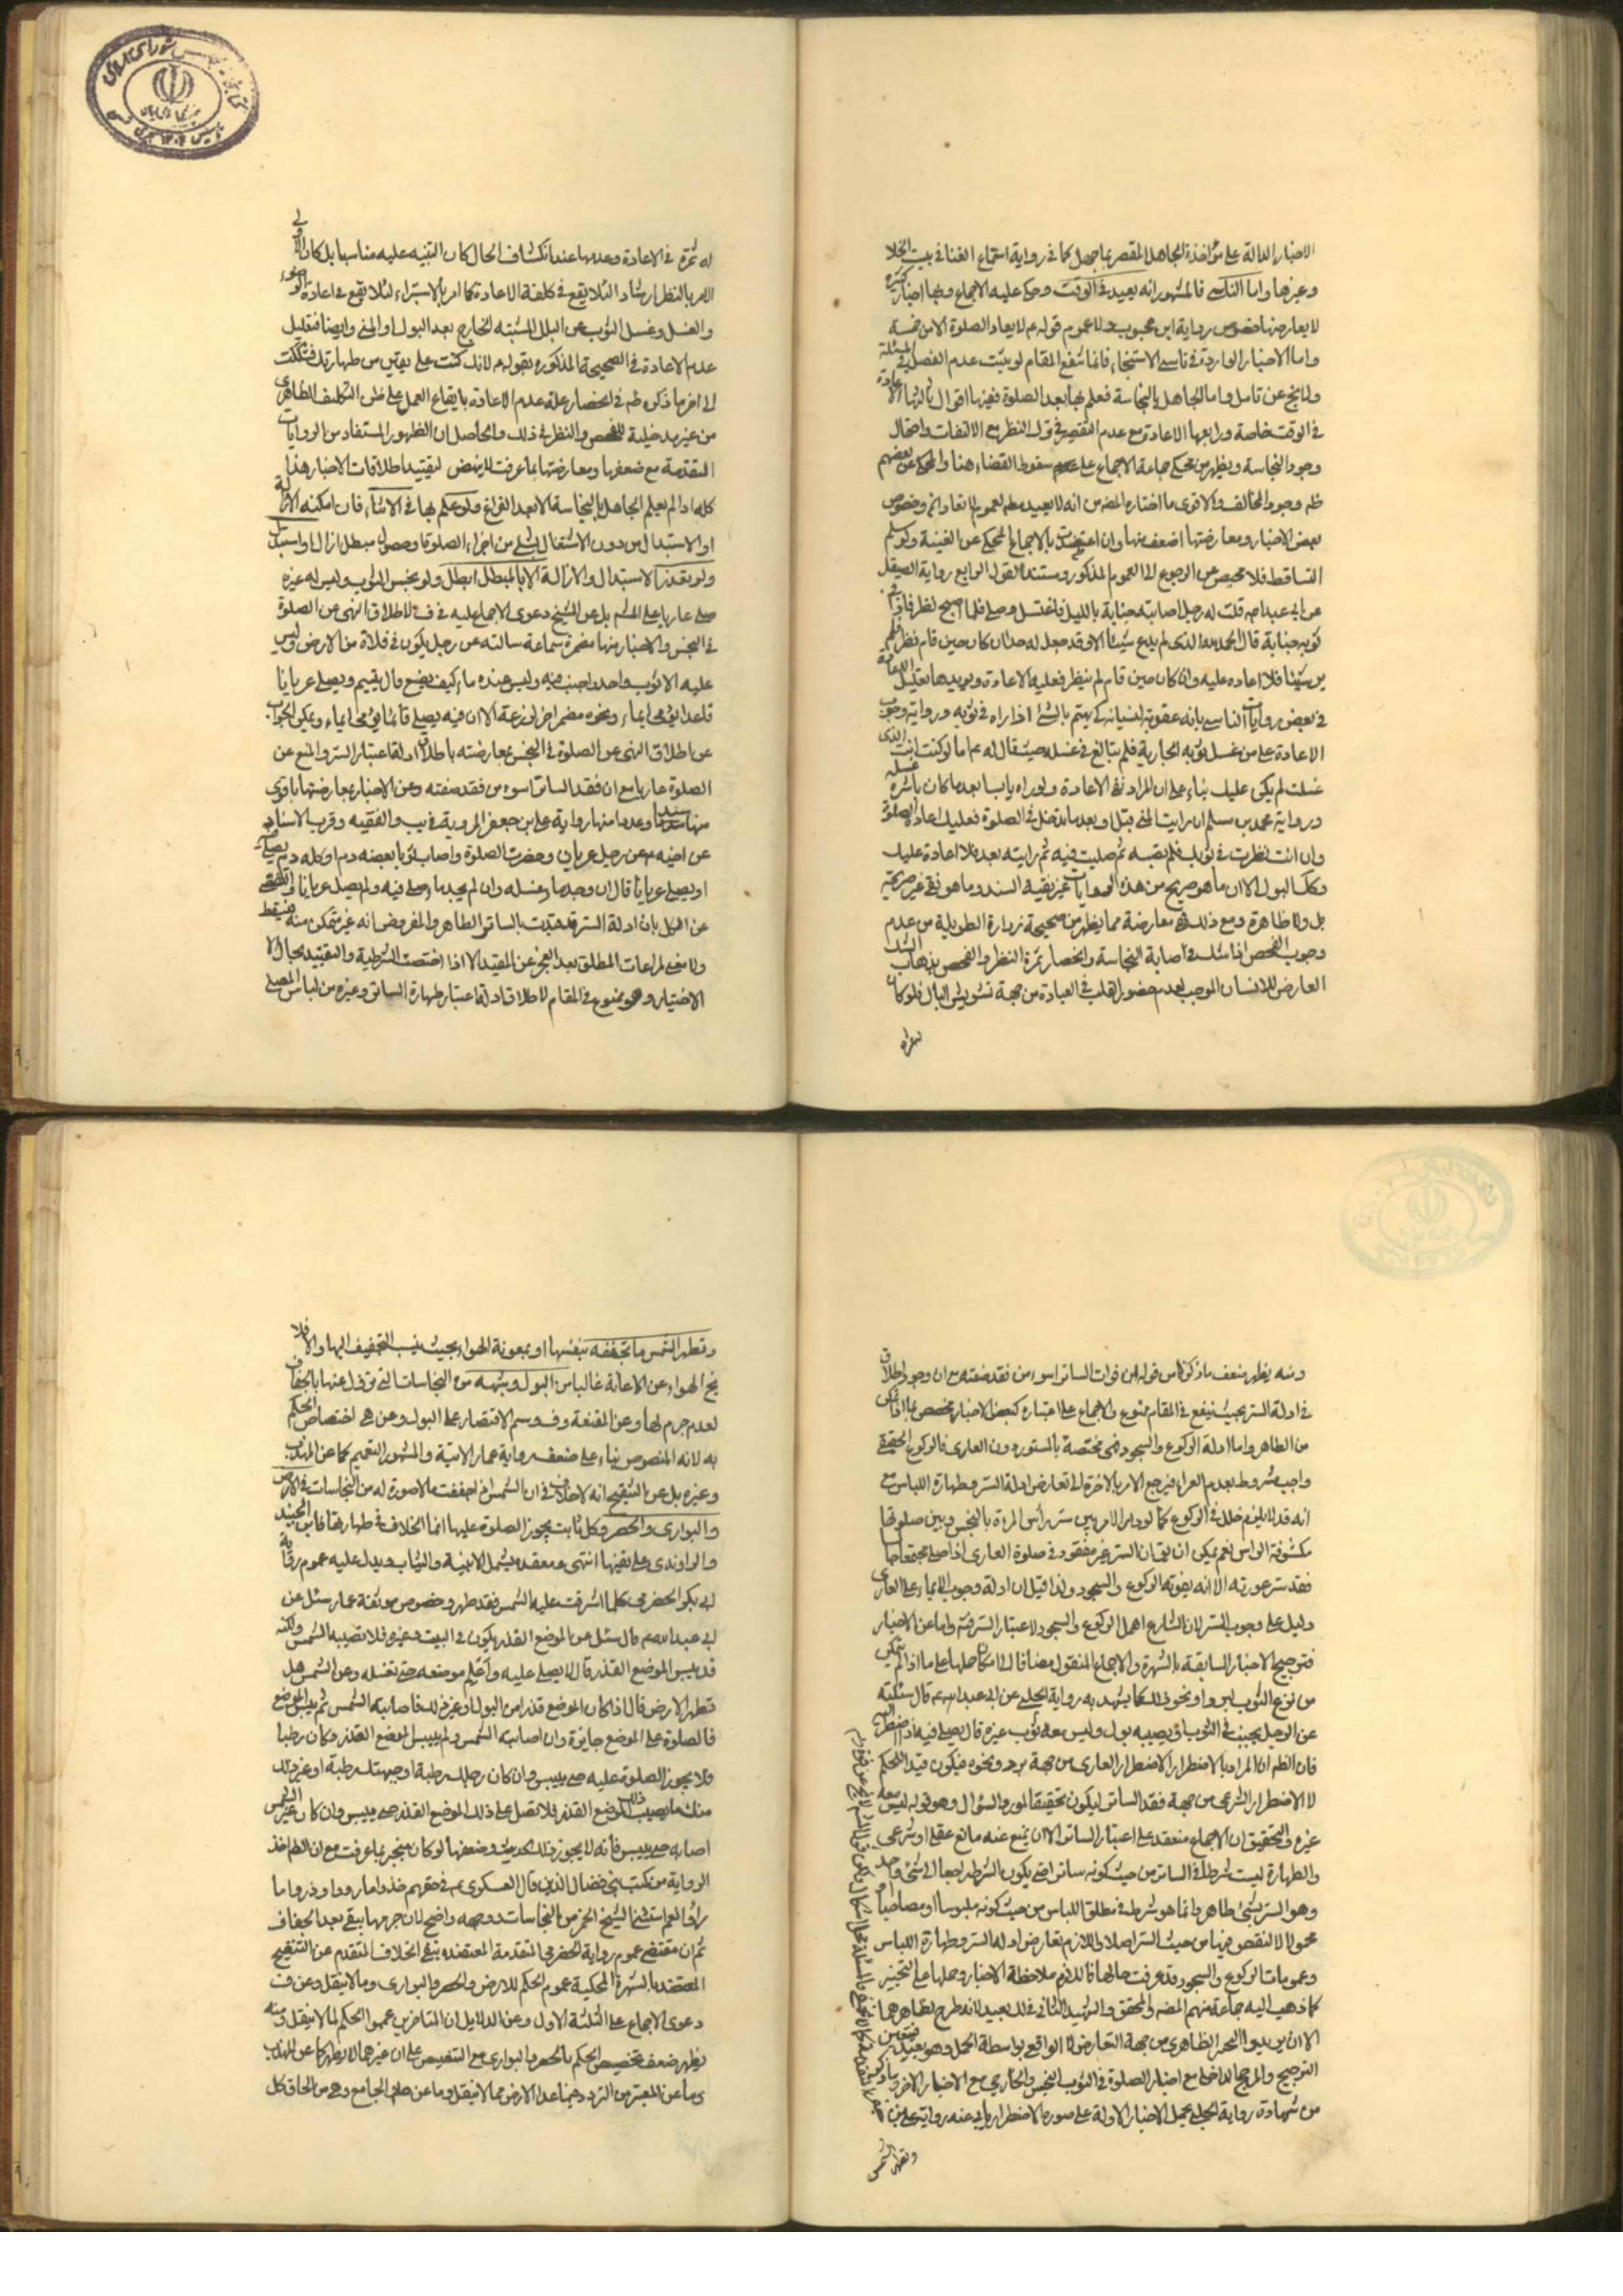 الاخبار الدالة على مؤاخذة الجاهل المقصر بما جهل كما في رواية استماع الغنا في بيت الخلا
وغيرها واما الناسي فالمشهور انه يعيد في الوقت وحكى عليه الاجماع وبها اخبار كثيرة
لا يعارضها خصوص رواية ابن محبوب ولا عموم قوله ع لا يعاد الصلوة الا من خمسة
واما الاخبار الواردة في ناسي الاستنجاء فانما تنفع المقام لو يثبت عدم الفصل في المسئلة
ولا يخ عن تامل واما الجاهل بالنجاسة فعلم بها بعد الصلوة ففيها اقوال ثالثها الاعادة
في الوقت خاصة ورابعها الاعادة مع عدم التقصير في ترك النظر مع الالتفات واحتمال
وجود النجاسة ويظهر من محكي جماعة الاجماع على سقوط القضاء هنا والمحكى عن بعضهم
ظه وجود المخالف والاقوى ما اختاره المصنف من انه لا يعيد مطه لعموم لا تعاد الخ وخصوص
بعض الاخبار ومعارضتها اضعف منها وان اعتضدت بالاجماع المحكى عن الغنية ولو سلم
التساقط فلا محيص عن الرجوع الى العموم المذكور ومستند القول الرابع رواية الصيقل
عن ابي عبد الله قلت له رجل اصابته جنابة بالليل فاغتسل وصلى فلما اصبح نظر فاذا في
ثوبه جنابة قال الحمد لله الذي لم يدع شيئا الا وقد جعل له حدا ان كان حين قام نظر فلم
ير شيئا فلا اعاده عليه وان كان حين قام لم ينظر فعليه الاعادة ويؤيدها تعليل الاعادة
في بعض روايات الناسي بانه عقوبة لنسيانه كي يهتم بالشئ اذا راه في ثوبه ورواية وجوب
الاعادة على من غسل ثوبه الجارية فلم تبالغ في غسله حيث قال له ع اما لو كنت انت الذي
غسلت لم يكن عليك بناء على ان المراد نفى الاعادة ولو راه يابسا بعد ما كان باشره غسله
ورواية محمد بن مسلم ان رايت المنى قبل او بعد ما تدخل في الصلوة فعليك اعادة الصلوة
وان انت نظرت في ثوبك فلم تصبه ثم صليت فيه ثم رايته بعد فلا اعادة عليك
وكك البول الا ان ما هو صريح من هذه الروايات غير نقية السند وما هو نقي غير صريحة
بل ولا ظاهرة ومع ذلك فهي معارضة مما يظهر من صحيحة زرارة الطويلة من عدم
وجوب الفحص اذا شك في اصابة النجاسة وانحصار ثمرة النظر والفحص بذهاب الشك
العارض للانسان الموجب لعدم حضور القلب في العبادة من جهة تشويش البال فلو كان
له ثمرة في الاعادة وعدمها عند انكشاف الحال كان التنبيه عليه مناسبا بل كان الاولى
الامر بالنظر ارشادا لئلا يقع في كلفة الاعادة كما امر بالاستبراء لئلا يقع في اعادة الوضوء
والغسل وغسل الثوب من البلل المشتبه الخارج بعد البول او المنى وايضا فتعليل
عدم الاعادة في الصحيحة المذكورة بقوله ع لانك كنت على يقين من طهارتك فشككت
الى اخر ما ذكره ظه في انحصار علة عدم الاعادة بايقاع العمل على طبق التكليف الظاهرى
من غير مدخلية للفحص والنظر في ذلك والحاصل ان الظهور المستفاد من الروايات
المتقدمة مع ضعفها ومعارضتها بما عرفت لا ينهض لتقييد اطلاقات الاخبار هذا
كله اذا لم يعلم الجاهل بالنجاسة الا بعد الفراغ فلو علم بها في الاثناء فان امكنه الازالة
او الاستبدال من دون الاشتغال بشئ من اجزاء الصلوة وحصول مبطل ازال او استبدل
ولو تعذر الاستبدال والازالة الا بالمبطل ابطل ولو نجس الثوب وليس له غيره
صلى عاريا على المش بل عن الشيخ دعوى الاجماع عليه في ف لاطلاق النهي عن الصلوة
في النجس والاخبار منها مضمرة سماعة سالته عن رجل يكون في فلاة من الارض وليس
عليه الا ثوب واحد واجنب فيه وليس عنده ماء كيف يصنع قال يتيمم ويصلى عريانا
قاعدا يومى ايماء ونحوه مضمر اخر لزرعة الا ان فيه يصلى قائما يومى ايماء ويمكن الجواب
عن اطلاق النهي عن الصلوة في النجس بمعارضته باطلاق ادلة اعتبار الستر والمنع عن
الصلوة عاريا مع ان فقد الساتر اسوء من فقد صفته وعن الاخبار بمعارضتها باقوى
منها سندا وعددا منها رواية علي بن جعفر المروية في يب والفقيه وقرب الاسناد
عن اخيه ع عن رجل عريان وحضرت الصلوة واصاب ثوبا بعضه دم او كله دم يصلى فيه
او يصلى عريانا قال ان وجد ماء غسله وان لم يجد ماء صلى فيه ولم يصل عريانا
عن الكل بان ادلة الستر قد قيدت بالساتر الطاهر والمفروض انه غير متمكن منه فيسقط
ولا معنى لمراعات المطلق بعد العجز عن المقيد الا اذا اختصت الشرطية والتقييد بحال
الاختيار وهو ممنوع في المقام لاطلاقات ادلة اعتبار طهارة الساتر وغيره من لباس المصلى
ومنه يظهر ضعف ما ذكر من قولهم من فوات الساتر اسوء من فقد صفته مع ان وجود اطلاق
في ادلة الستر بحيث ينفع في المقام ممنوع والاجماع على اعتباره كبعض الاخبار مختص بما اذا تمكن
من الطاهر واما ادلة الركوع والسجود فهي مختصة بالمستور دون العارى فالركوع الحقيقى
واجب مشروط بعدم العراء فيرجع الامر بالاخرة الى تعارض ادلة الستر وطهارة اللباس مع
انه قد لا يلزم خلل في الركوع كما لو دار الامر بين ستر رأس المرءة بالنجس وبين صلوتها
مكشوفة الراس نعم يمكن ان يقال ان الستر غير مفقود في صلوة العارى اذا صلى مجتمعا
فقد ستر عورته الا انه يفوته الركوع والسجود ولذا قيل ان ادلة وجوب الايماء على العارى
دليل على وجوب الستر لان الشارع اهمل الركوع والسجود لاعتبار الستر فيه واما عن الاخبار
فترجيح الاخبار السابقة بالشهرة والاجماع المنقول مضافا الى امكان حملها على ما اذا لم يتمكن
من نزع الثوب لبرد او نحو ذلك كما يشهد به رواية الحلبى عن ابى عبد الله ع قال سئلته
عن الرجل يجنب في الثوب او يصيبه بول وليس معه ثوب غيره قال يصلى فيه اذا اضطر اليه
فان الظه ان المراد بالاضطرار الاضطرار العارى من جهة برد ونحوه فيكون قيدا للحكم
لا الاضطرار الشرعى من جهة فقد الساتر ليكون تحقيقا لمورد السؤال وهو قوله ليس معه
غيره والتحقيق ان الاجماع منعقد على اعتبار الساتر الا ان يمنع عنه مانع عقلى او شرعى
والطهارة ليست شرطا في الساتر من حيث كونه ساترا حتى يكون الشرط راجعا الى شئ واحد
وهو الستر بشئ طاهر وانما هو شرط في مطلق اللباس من حيث كونه ملبوسا او مصاحبا
محمولا لا لنقص فيها من حيث الستر اصلا واللازم تعارض ادلة الستر وطهارة اللباس
وعمومات الركوع والسجود قد عرفت حالها فاللازم ملاحظة الاخبار وحملها على التخيير
كما ذهب اليه جماعة منهم المصنف والمحقق والشهيد الثانى في ذلك بعيد لانه طرح لظاهرهما
الا ان يريدوا التخيير الظاهرى من جهة التعارض لا الواقعى بواسطة الحمل وهو بعيد فيتعين
الترجيح والمرجح الداخلى مع اخبار الصلوة في الثوب النجس والخارجى مع الاخبار الاخر
من شهادة رواية الحلبى بحمل الاخبار الاولة على صورة الاضطرار يابى عنه رواية على بن
وتطهر الشمس
وتطهر الشمس ما تجففه بنفسها او بمعونة الهواء بحيث ينسب التجفيف اليها والا فلا
يخ الهواء عن الاعانة غالبا من البول وشبهه من النجاسات التي تزول عنها بالجفاف
لعدم جرم لها وعن المقنعة وف وسم الاقتصار على البول وعن هى اختصاص الحكم
به لانه المنصوص بناء على ضعف رواية عمار الاتية والمشهور التعميم كما عن المهذب
وغيره بل عن التنقيح انه لا خلاف في ان الشمس اذا جففت ما لا صورة له من النجاسات في الارض
والبوارى والحصر وكل ثابت يجوز الصلوة عليها انما الخلاف في طهارتها فابن الجنيد
والراوندى على نفيها انتهى ومعقده يشمل الابنية والثياب ويدل عليه عموم رواية
ابى بكر الحضرمى كلما اشرقت عليه الشمس فقد طهر وخصوص موثقة عمار سئل عن
ابى عبد الله ع قال سئل عن الموضع القذر يكون في البيت وغيره فلا تصيبه الشمس ولكنه
قد يبس الموضع القذر قال لا يصلى عليه واعلم موضعه حتى تغسله وعن الشمس هل
تطهر الارض قال اذا كان الموضع قذرا من البول او غير ذلك فاصابته الشمس ثم يبس الموضع
فالصلوة على الموضع جايزة وان اصابته الشمس ولم ييبس الموضع القذر وكان رطبا
فلا يجوز الصلوة عليه حتى ييبس وان كان رجلك رطبة او جبهتك رطبة او غير ذلك
منك ما يصيب ذلك الموضع القذر فلا تصل على ذلك الموضع القذر حتى ييبس وان كان غير الشمس
اصابه حتى ييبس فانه لا يجوز ذلك الحديث وضعفها لو كان منجبر بما عرفت مع ان الظه اخذ
الرواية من كتب بنى فضال الذين قال العسكرى ع في حقهم خذوا ما رووا وذروا ما
رأوا نعم استثنى الشيخ الخمر من النجاسات ووجهه واضح لان جرمها يبقى بعد الجفاف
ثم ان مقتضى عموم رواية الحضرمى المتقدمة المعتضده بنفى الخلاف المتقدم عن التنقيح
المعتضد بالشهرة المحكية عموم الحكم للارض والحصر والبوارى وما لا ينقل وعن ف
دعوى الاجماع على الثلثة الاول وعن الدلايل ان المتاخرين عمموا الحكم لما لا ينقل ومنه
يظهر ضعف تخصيص الحكم بالحصر والبوارى مع التنصيص على ان غيرهما لا يطهر كما عن المهذب
وما عن المعتبر من التردد فيما عدا الارض مما لا ينقل وما عن الجامع وهو من الحاق كل